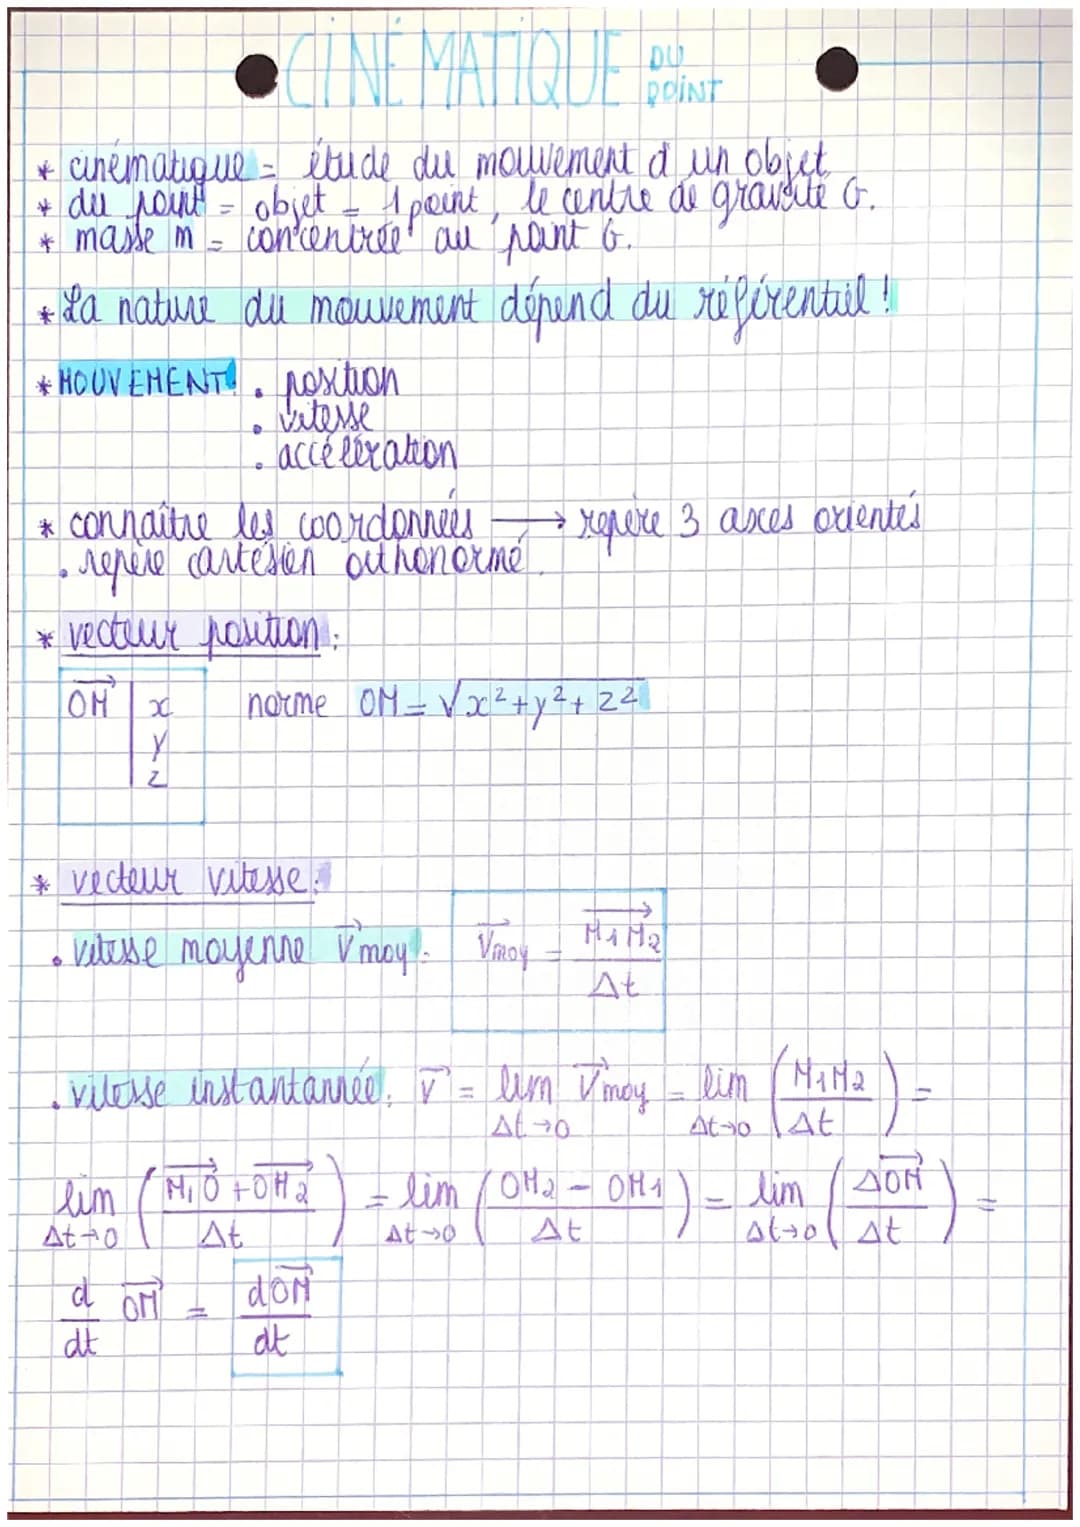 CINÉMATIQUE DU POINT
* cinématique = étude du mouvement d'un objet
* du point = objet = 1 point, le centre de gravité G.
* masse m = concentrée au point G.
* La nature du mouvement dépend du référentiel !
* MOUVEMENT: . position
. vitesse
. accélération
* connaître les coordonnées → repère 3 axes orientés
. repère cartésien orthonormé.
* vecteur position :
OM⃗ | x norme OM = √x² + y² + z²
y
z
* vecteur vitesse :
. vitesse moyenne V⃗moy : V⃗moy = M₁M₂⃗ / Δt
. vitesse instantannée: V⃗ = lim Δt→0 V⃗moy = lim Δt→0 (M₁M₂ / Δt) =
lim Δt→0 (M₁O⃗ + OM₂⃗ / Δt) = lim Δt→0 (OM₂ - OM₁ / Δt) = lim Δt→0 (ΔOM⃗ / Δt) =
d/dt OM⃗ = dOM⃗/dt